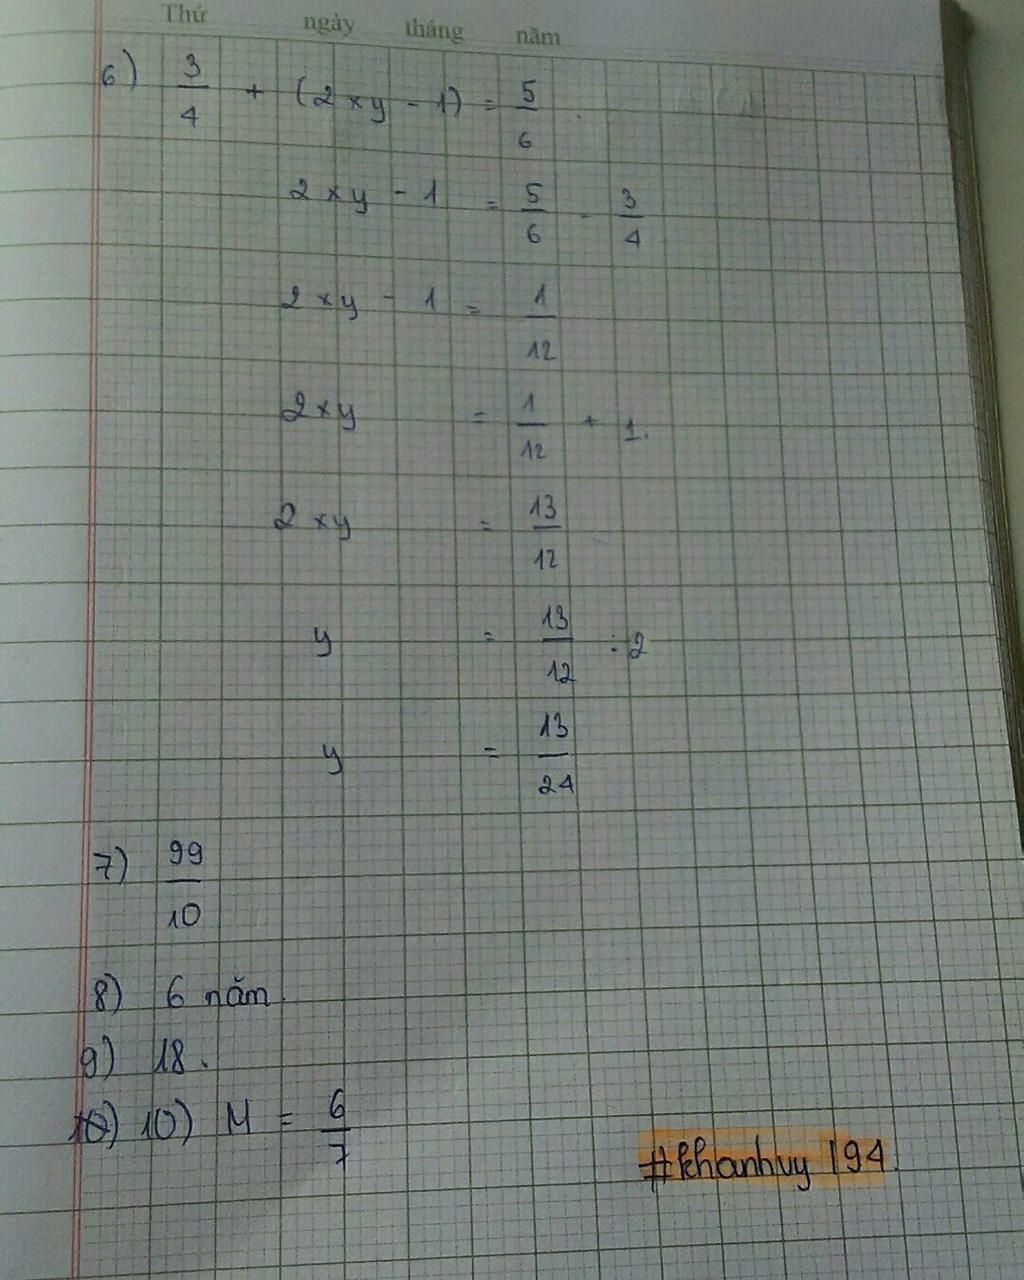 Thứ ngày tháng năm
6) 3/4 + (2 x y - 1) = 5/6
2 x y - 1 = 5/6 - 3/4
2 x y - 1 = 1/12
2 x y = 1/12 + 1.
2 x y = 13/12
y = 13/12 : 2
y = 13/24
7) 99/10
8) 6 năm
9) 18.
10) 10) M = 6/7
#khanhuy 194